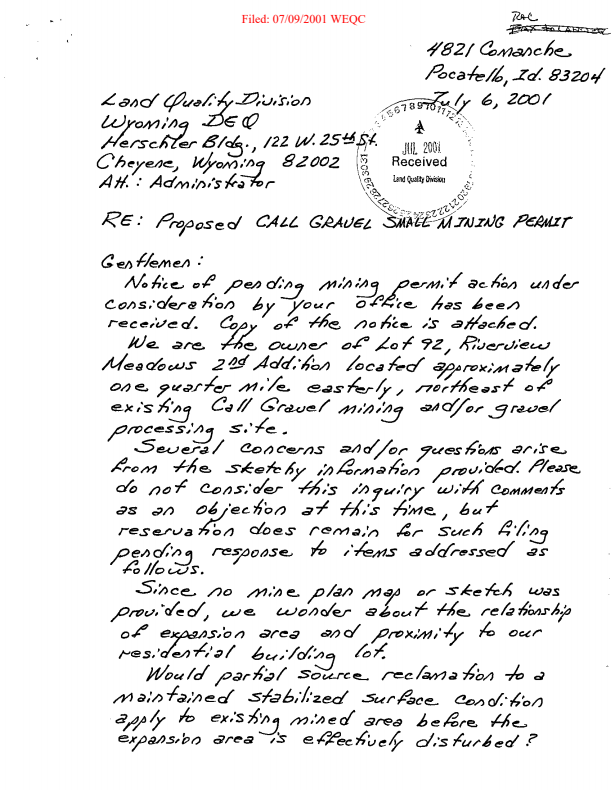 Filed: 07/09/2001 WEQC
RAC
4821 Comanche
Pocatello, Id. 83204
July 6, 2001
Land Quality Division
Wyoming DEQ
Herschler Bldg., 122 W. 25th St.
Cheyene, Wyoming 82002
Att.: Administrator
JUL 2001
Received
Land Quality Division
RE: Proposed CALL GRAVEL SMALL MINING PERMIT
Gentlemen:
Notice of pending mining permit action under
consideration by your office has been
received. Copy of the notice is attached.
We are the owner of Lot 92, Riverview
Meadows 2nd Addition located approximately
one quarter mile easterly, northeast of
existing Call Gravel mining and/or gravel
processing site.
Several concerns and/or questions arise
from the sketchy information provided. Please
do not consider this inquiry with comments
as an objection at this time, but
reservation does remain for such filing
pending response to items addressed as
follows.
Since no mine plan map or sketch was
provided, we wonder about the relationship
of expansion area and proximity to our
residential building lot.
Would partial source reclamation to a
maintained stabilized surface condition
apply to existing mined area before the
expansion area is effectively disturbed?